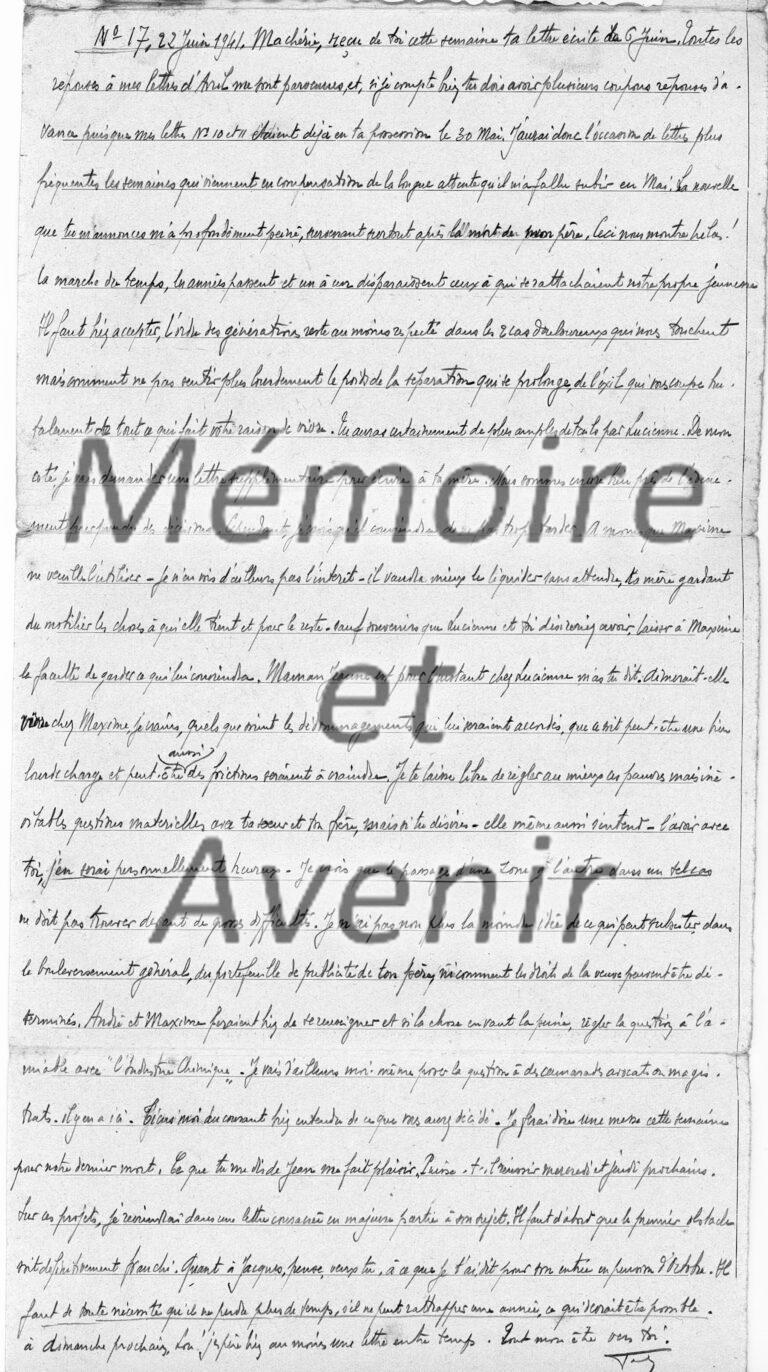 No 17, 22 Juin 1941. Ma chérie, reçu de toi cette semaine ta lettre écrite du 6 Juin. Toutes les
réponses à mes lettres d'Avril me sont parvenues, et, si je compte bien tu dois avoir plusieurs coupons réponses d'a-
vance puisque mes lettres No 10 et 11 étaient déjà en ta possession le 30 Mai. J'aurai donc l'occasion de lettres plus
fréquentes les semaines qui viennent en compensation de la longue attente qu'il m'a fallu subir en Mai. La nouvelle
que tu m'annonces m'a profondément peiné, survenant surtout après la mort de mon père. Ceci nous montre hélas!
la marche du temps, les années passent et un à un disparaissent ceux à qui se rattachaient notre propre jeunesse
Il faut bien accepter, l'ordre des générations reste au moins respecté dans les 2 cas douloureux qui nous touchent
mais comment ne pas sentir plus lourdement le poids de la séparation qui se prolonge, de l'exil qui vous coupe bru-
talement de tout ce qui fait votre raison de vivre. Tu auras certainement de plus amples détails par Lucienne. De mon
côté je vais demander une lettre supplémentaire pour écrire à ta mère. Nous sommes encore bien près de l'évène-
ment pour prendre des décisions. Cependant, je crois qu'il conviendra de ne pas trop tarder. A moins que Maxime
ne veuille l'utiliser - je n'en vois d'ailleurs pas l'intérêt - il vaudra mieux le liquider sans attendre, ta mère gardant
du mobilier les choses à qui elle tient et pour le reste - sauf souvenirs que Lucienne et toi désireriez avoir, laisser à Maxime
la faculté de garder ce qui lui conviendra. Maman Jeanne est pour l'instant chez Lucienne m'as tu dit. Aimerait-elle
vivre chez Maxime, je crains, quels que soient les dédommagements qui lui seraient accordés, que ce soit peut-être une bien
lourde charge et peut-être aussi des frictions seraient à craindre. Je te laisse libre de régler au mieux ces pauvres mais iné-
vitables questions matérielles avec ta soeur et ton frère, mais si tu désires - elle même aussi s'entend - l'avoir avec
toi, j'en serai personnellement heureux. Je crois que le passage d'une zone à l'autre dans un tel cas
ne doit pas trouver devant de grosses difficultés. Je n'ai pas non plus la moindre idée de ce qui peut subsister, dans
le bouleversement général, du portefeuille de publicité de ton père, ni comment les droits de la veuve peuvent être dé-
terminés. André et Maxime feraient bien de se renseigner et si la chose en vaut la peine, régler la question à l'a-
miable avec "l'Industrie Chimique". Je vais d'ailleurs moi-même poser la question à des camarades avocats ou magis-
trats - il y en a ici. Tiens moi au courant bien entendu de ce que vous aurez décidé. Je ferai dire une messe cette semaine
pour notre dernier mort. Ce que tu me dis de Jean me fait plaisir. Puisse-t-il réussir mercredi et jeudi prochains.
Sur ces projets, je reviendrai dans une lettre consacrée en majeure partie à son sujet. Il faut d'abord que le premier obstacle
soit définitivement franchi. Quant à Jacques, pense, veux tu, à ce que je t'ai dit pour son entrée en pension d'Octobre. Il
faut de toute nécessité qu'il ne perde plus de temps, s'il ne peut rattrapper une année, ce qui devrait être possible.
à dimanche prochain, non! j'espère bien au moins une lettre entre temps. Tout mon être vers toi.
Mémoire
et
Avenir